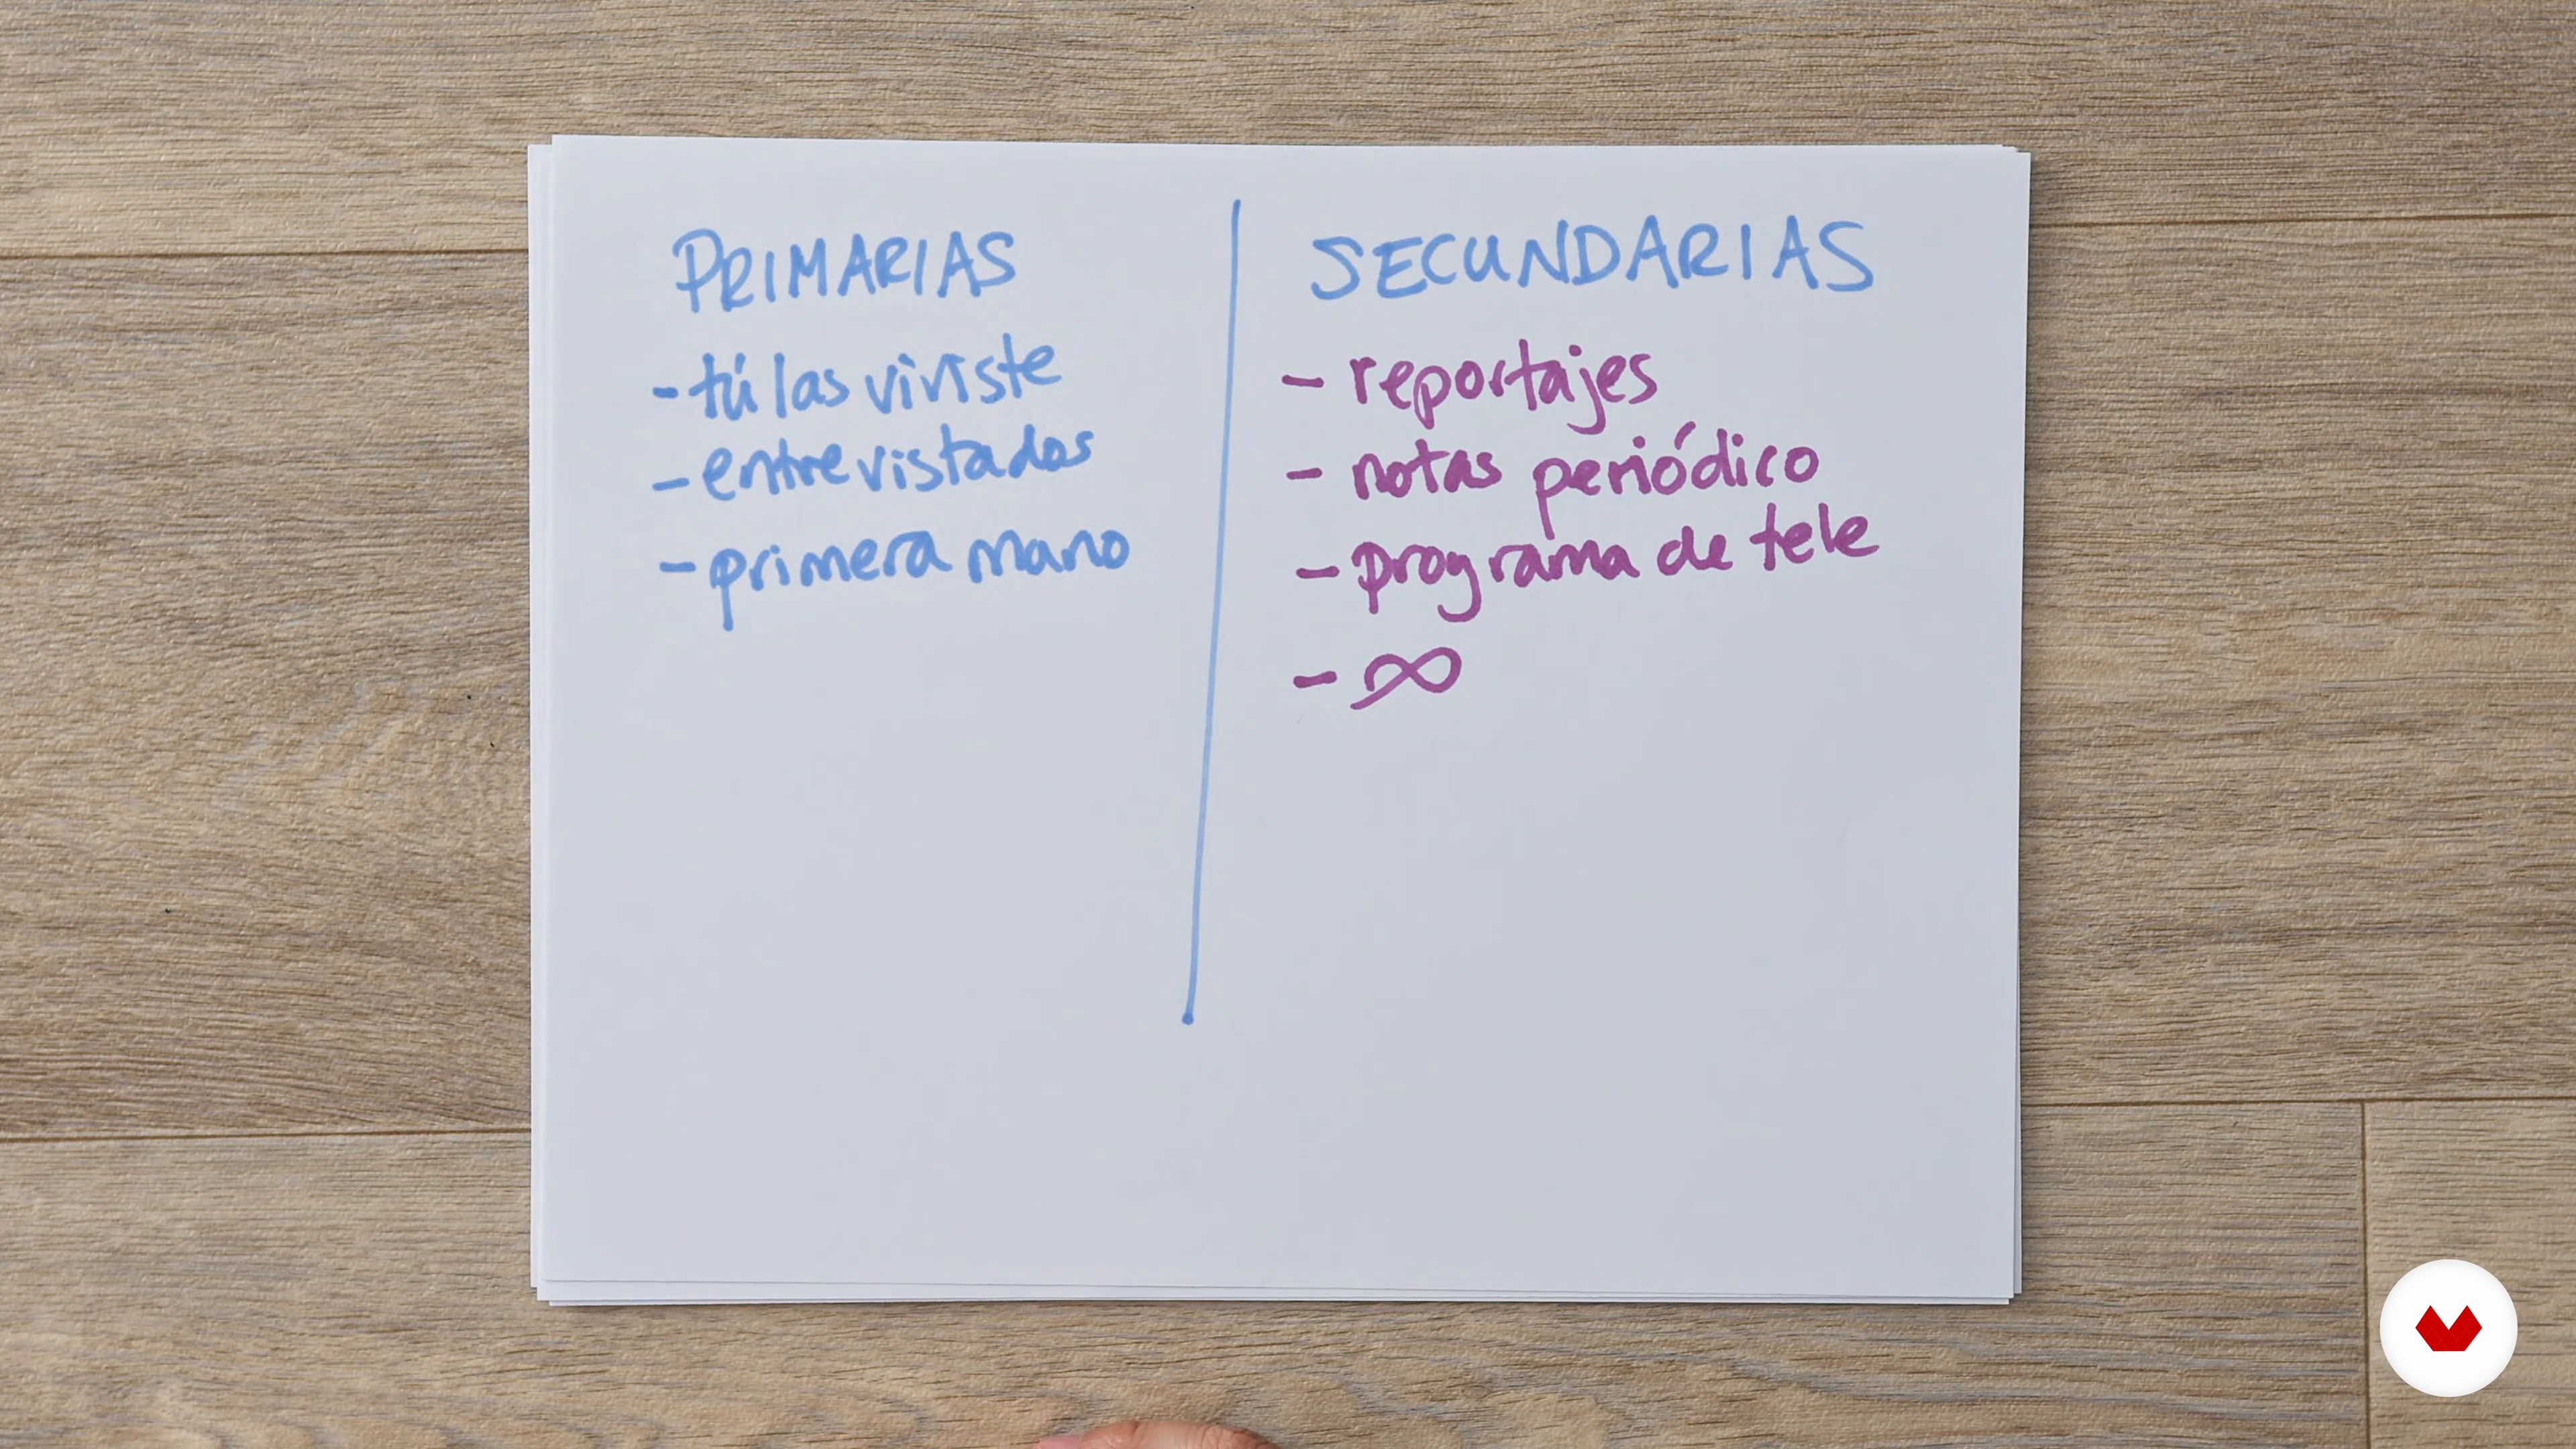 PRIMARIAS
- tú las viviste
- entrevistados
- primera mano
SECUNDARIAS
- reportajes
- notas periódico
- programa de tele
- ∞